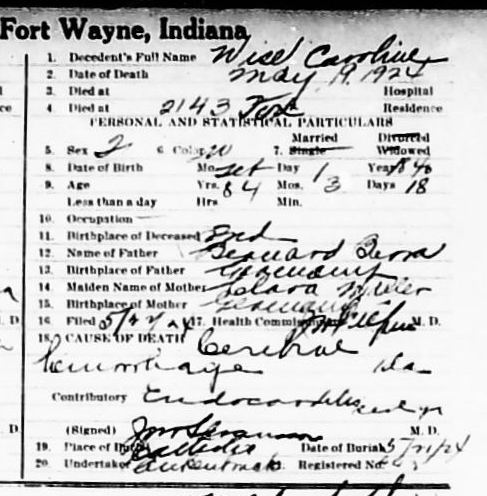 Fort Wayne, Indiana
1. Decedent's Full Name Wise Caroline
2. Date of Death May 19, 1924
3. Died at Hospital
4. Died at 2143 Fox Residence
PERSONAL AND STATISTICAL PARTICULARS
Married Divorced
5. Sex 6. Color W 7. Single Widowed
8. Date of Birth Mo. Day 1 Year 1840
9. Age Yrs. 84 Mos. 3 Days 18
Less than a day Hrs Min.
10. Occupation
11. Birthplace of Deceased Ind
12. Name of Father Bernard
13. Birthplace of Father Germany
14. Maiden Name of Mother Clara Miller
15. Birthplace of Mother Germany
16. Filed 5/22/24 17. Health Commissioner M. D.
18. CAUSE OF DEATH Cerebral
hemorrhage
Contributory Endocarditis
(Signed) M. D.
19. Place of Burial Catholic Date of Burial 5/21/24
20. Undertaker Registered No